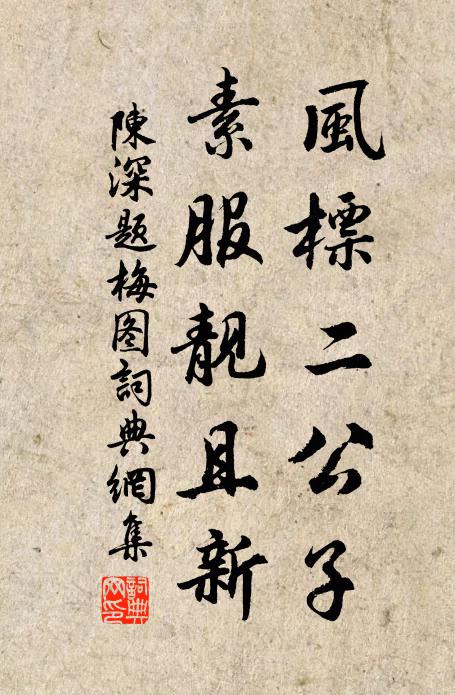 風標二公子
素服靚且新
陳深題梅图詞典網集
詞典网印